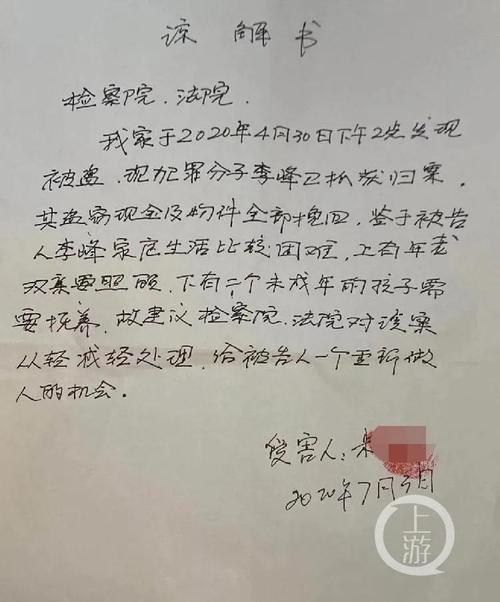 谅解书
检察院、法院。
我家于2020年4月30日下午2点发现
被盗、现犯罪分子李峰已抓获归案，
其盗窃现金及物件全部挽回，鉴于被告
人李峰家庭生活比较困难，上有年老
双亲要照顾，下有二个未成年的孩子需
要抚养，故建议检察院、法院对该案
从轻减轻处理，给被告人一个重新做
人的机会。
受害人：朱
2020年7月3日
上游